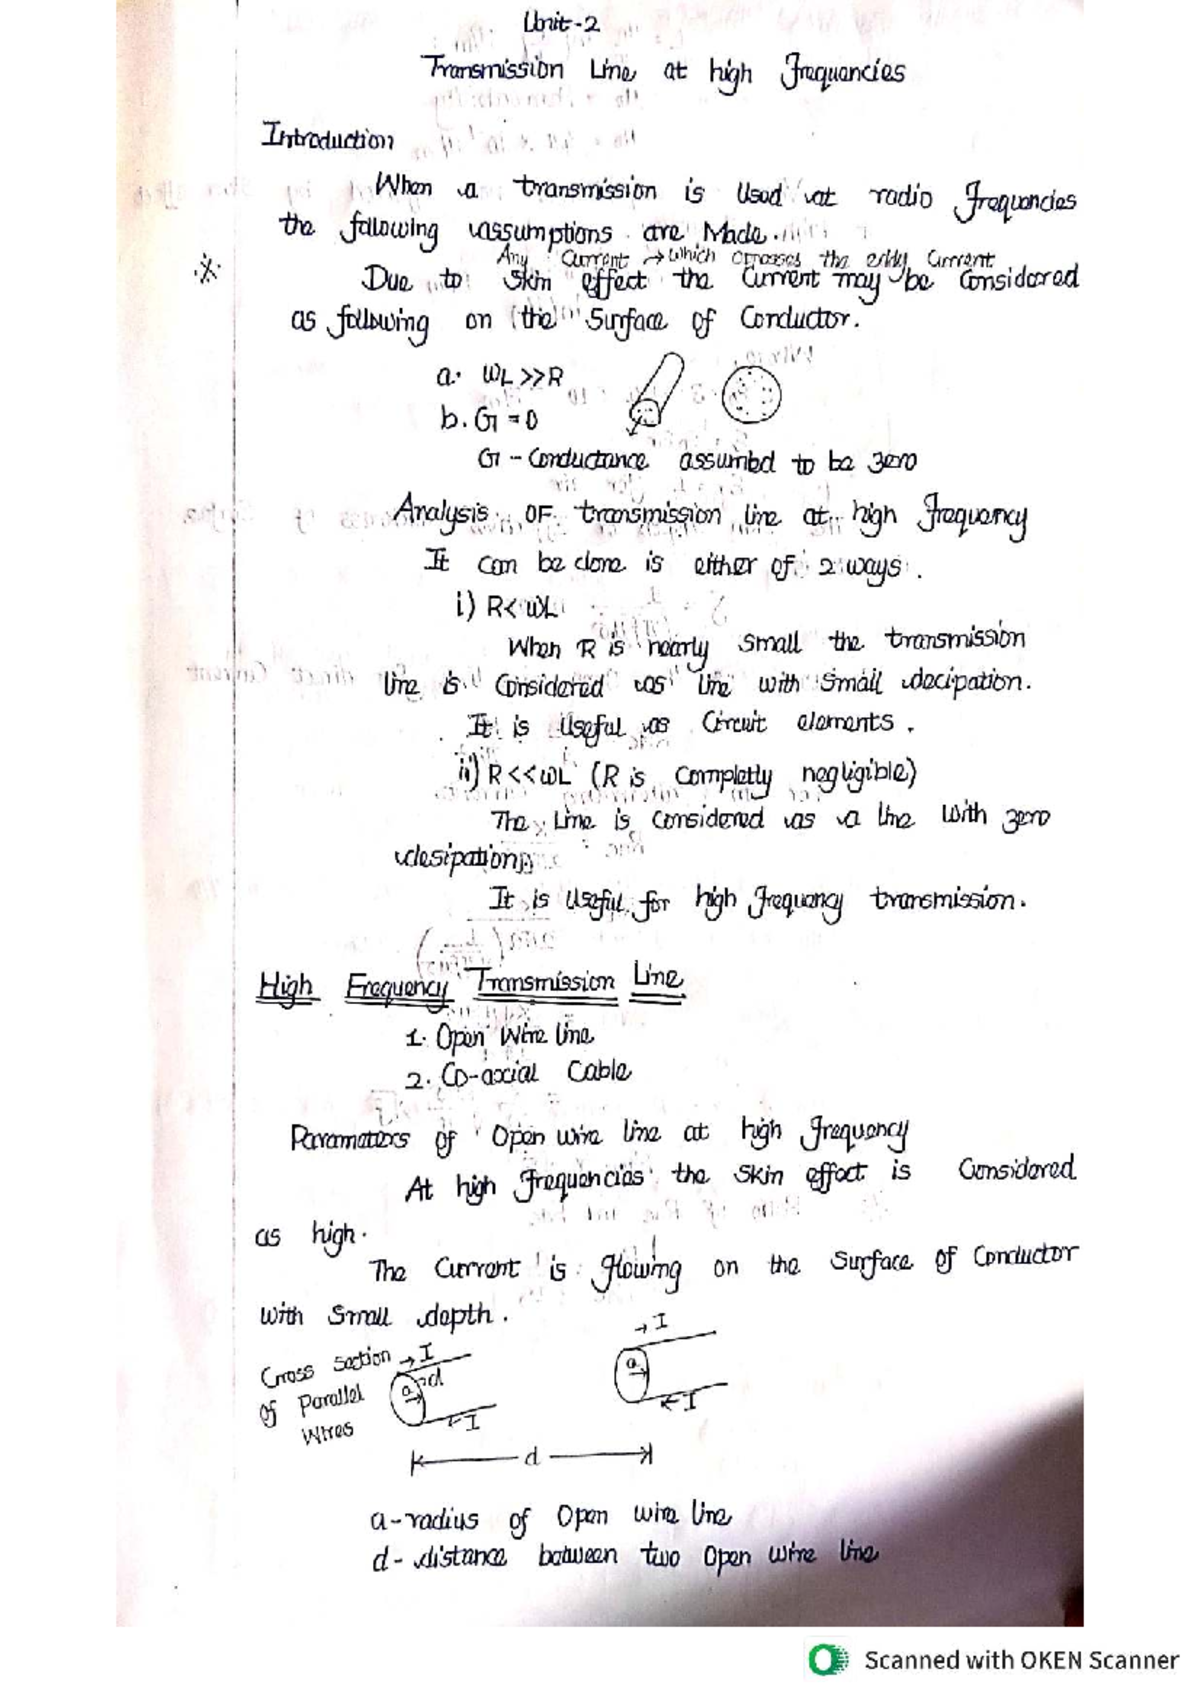 Unit-2
Transmission Line at high Frequencies
Introduction
When a transmission is Used at radio Frequencies
the following assumptions are Made.
Any Current → which crosses the eddy Current
※ Due to skin effect the Current may be Considered
as following on the Surface of Conductor.
a. WL >> R
b. G = 0
G - Conductance assumbd to be zero
Analysis OF transmission line at high Frequency
It can be done is either of 2 ways.
i) R < WL
When R is nearly small the transmission
line is Considered as line with small decipation.
It is Useful as Circuit elements.
ii) R << WL (R is Completly negligible)
The Line is Considered as a line with zero
desipation
It is Useful for high Frequency transmission.
High Frequency Transmission Line
1. Open Wire line
2. Co-axial Cable
Parameters of Open wire line at high Frequency
At high Frequencies the skin effect is Considered
as high.
The Current is flowing on the Surface of Conductor
with Small depth.
Cross Section
of Parallel
Wires
→ I
a
d
← I
→ I
a
← I
d
a - radius of Open wire line
d - distance between two Open wire line
Scanned with OKEN Scanner